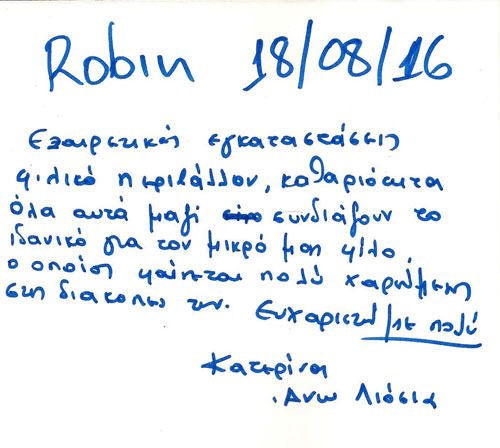 Robin 18/08/16
Εξαιρετικές εγκαταστάσεις
φιλικό περιβάλλον, καθαριότητα
όλα αυτά μαζί συνδιάζουν το
ιδανικό για τον μικρό μου φίλο,
ο οποίος φαίνεται πολύ χαρούμενος
στις διακοπές του. Ευχαριστώ/με πολύ
Κατερίνα
Ανω Λιόσια